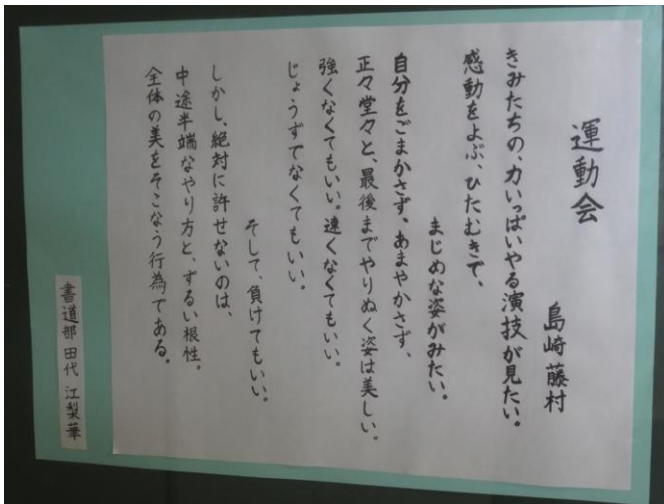 運動会
島崎藤村
きみたちの、力いっぱいやる演技が見たい。
感動をよぶ、ひたむきで、
まじめな姿がみたい。
自分をごまかさず、あまやかさず、
正々堂々と、最後までやりぬく姿は美しい。
強くなくてもいい。速くなくてもいい。
じょうずでなくてもいい。
そして、負けてもいい。
しかし、絶対に許せないのは、
中途半端なやり方と、ずるい根性。
全体の美をそこなう行為である。
書道部 田代 江梨華